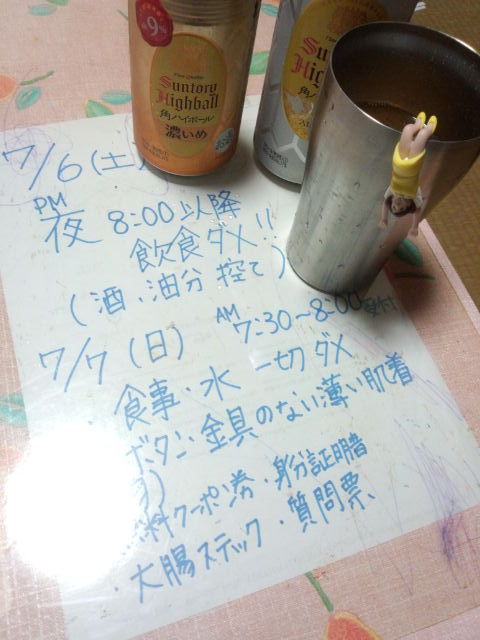 9%
Suntory
Highball
角ハイボール
濃いめ
Suntory
Highball
7/6(土)
PM
夜 8:00以降
飲食ダメ!!
(酒、油分 控て)
7/7(日) AM 7:30~8:00 受付
食事・水 一切ダメ
ボタン・金具のない薄い肌着
料クーポン券・身分証明書
・大腸スティック・質問票